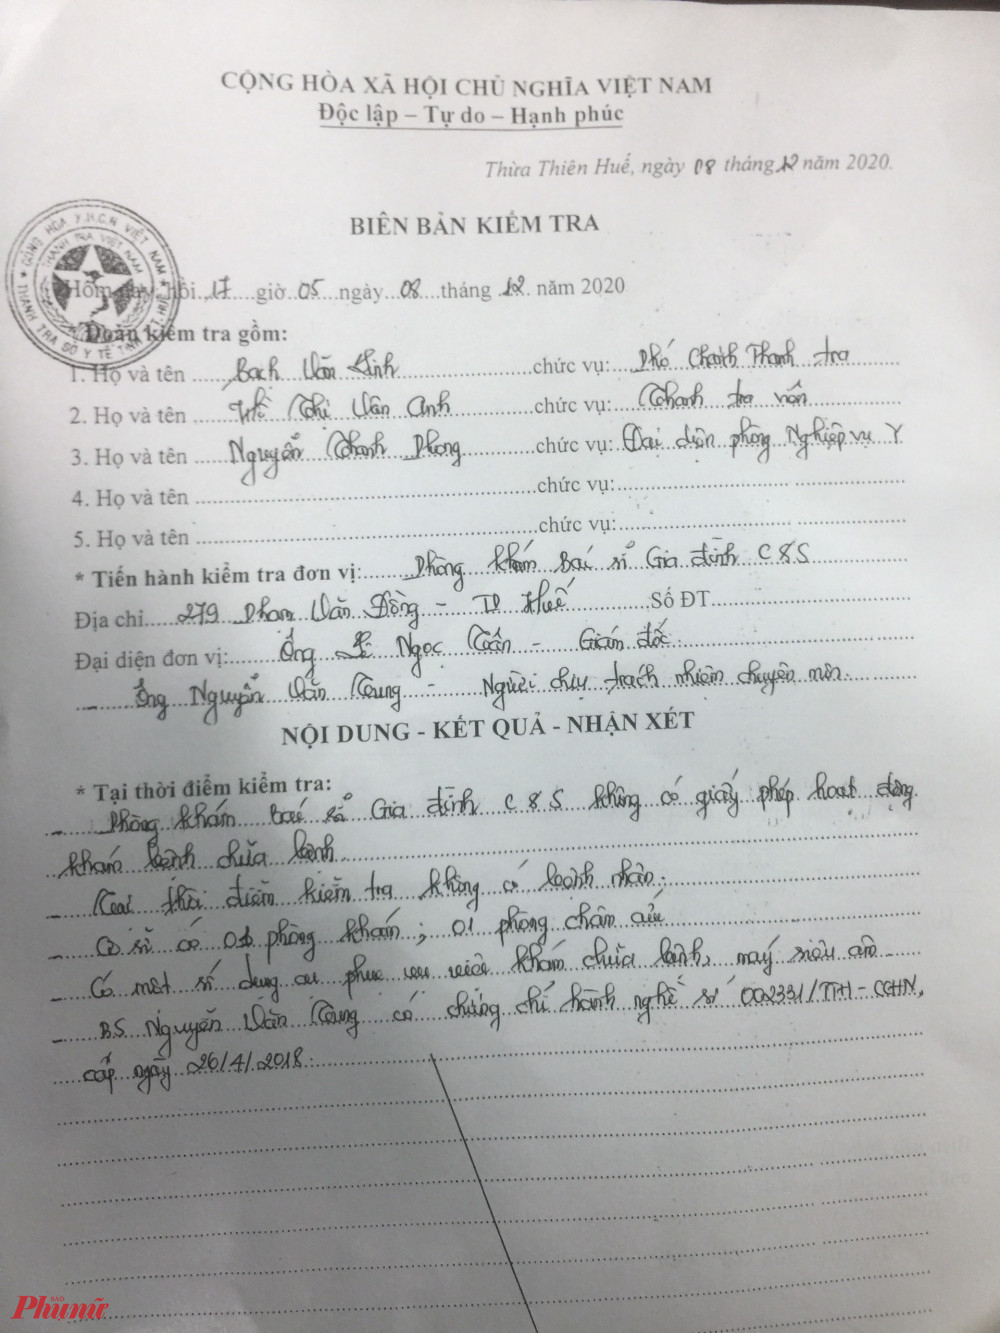 CỘNG HÒA XÃ HỘI CHỦ NGHĨA VIỆT NAM
Độc lập – Tự do – Hạnh phúc
Thừa Thiên Huế, ngày 08 tháng 12 năm 2020.
BIÊN BẢN KIỂM TRA
Hôm nay, hồi 17 giờ 05 ngày 08 tháng 12 năm 2020
Đoàn kiểm tra gồm:
1. Họ và tên Bạch Văn Linh chức vụ: Phó Chánh Thanh tra
2. Họ và tên Thị Vân Anh chức vụ: Thanh tra viên
3. Họ và tên Nguyễn Thanh Phong chức vụ: Đại diện phòng Nghiệp vụ Y
4. Họ và tên chức vụ:
5. Họ và tên chức vụ:
* Tiến hành kiểm tra đơn vị: Phòng khám Bác sĩ Gia đình C&S
Địa chỉ 279 Phạm Văn Đồng - TP Huế Số ĐT
Đại diện đơn vị: Ông Lê Ngọc Tuấn - Giám đốc.
- Ông Nguyễn Văn Trung - Người chịu trách nhiệm chuyên môn.
NỘI DUNG - KẾT QUẢ - NHẬN XÉT
* Tại thời điểm kiểm tra:
- Phòng khám bác sĩ Gia đình C&S không có giấy phép hoạt động
khám bệnh chữa bệnh
- Tại thời điểm kiểm tra không có bệnh nhân.
- Cơ sở có phòng khám; 01 phòng châm cứu
- Có một số dụng cụ phục vụ việc khám chữa bệnh, máy siêu âm
- BS. Nguyễn Văn Trung có chứng chỉ hành nghề số 002331/TTH-CCHN,
cấp ngày 26/4/2018.
CỘNG HÒA X.H.C.N VIỆT NAM
THANH TRA VIỆT NAM
THANH TRA SỞ Y TẾ TỈNH T.T.HUẾ
BÁO
Phụ nữ